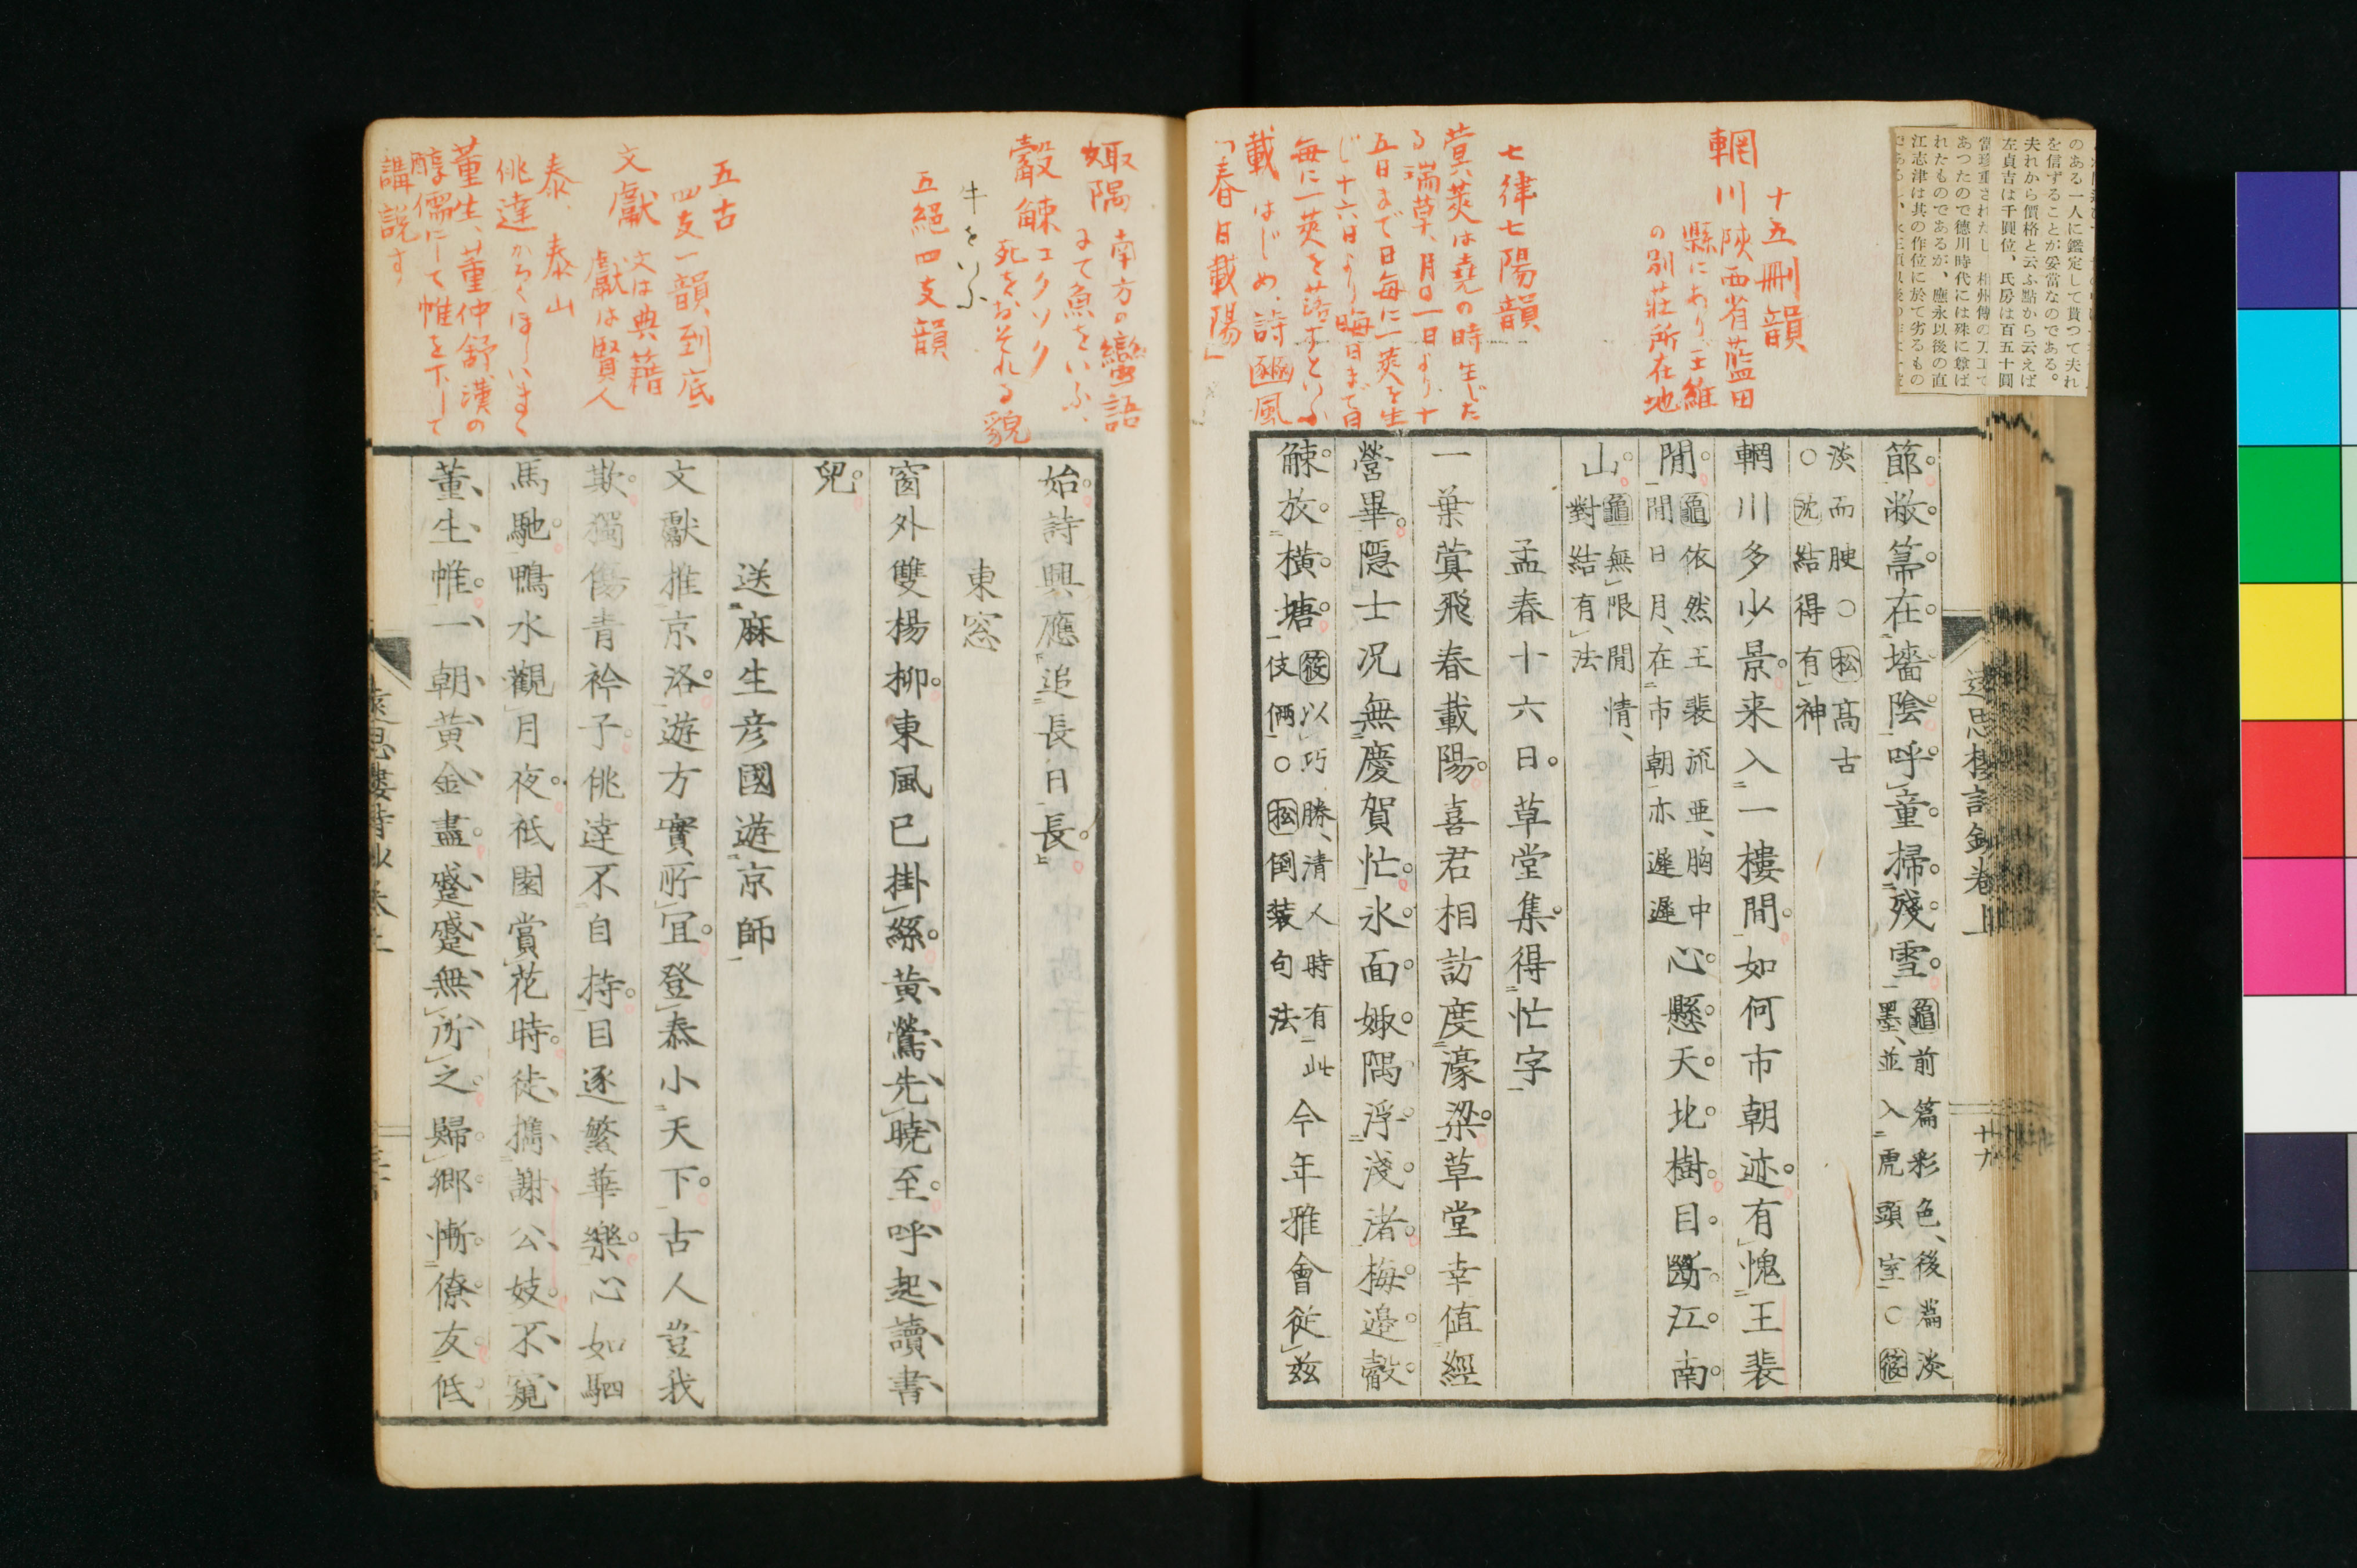 のある一人に鑑定して貰つて夫れ
を信ずることが妥當なのである。
夫れから價格と云ふ點から云えば
左貞吉は千圓位、氏房は百五十圓
あつたので德川時代には殊に尊ば
れたものであるが、應永以後の直
江志津は其の作位に於て劣るもの
十五刪韻
輞川 陝西省藍田
縣にあり王維
の別莊所在地
七律七陽韻
蓂莢は堯の時生じた
る瑞草、月の一日より十
五日まで日每に一莢を生
じ十六日より晦日まで日
每に一莢を落すといふ
載 はじめ、詩豳風
「春日載陽」
遠思樓詩鈔卷上
廿九
節敝箒在墻陰呼童掃殘雪 龜前篇彩色、後篇淡
墨、並入虎頭室○筱
淡而腴○松高古
○沈結得有神
輞川多少景来入一樓間如何市朝迹有愧王裴
閒 龜依然王裴流亜、胸中
閒日月、在市朝亦遲遲
心懸天北樹目斷江南
山 龜無限閒情、
對結有法
孟春十六日草堂集得忙字
一葉蓂飛春載陽喜君相訪度濠梁草堂幸値經
營畢隱士況無慶賀忙氷面娵隅浮淺渚梅邉觳
觫放横塘 筱以巧勝、清人時有此
伎倆○松倒装句法
今年雅會從玆
娵隅 南方の蠻語
にて魚をいふ、
觳觫 コクソク
死をおそれる貌
牛をいふ
五絕四支韻
五古
四支一韻到底
文獻 文は典籍
獻は賢人
泰、泰山
佻達 かろくほしいまま
董生、董仲舒、漢の
醇儒にして帷を下して
講説す
始詩興應追長日長
東窓
窗外雙楊柳東風已掛絲黄鶯先曉至呼起讀書
兒
送麻生彦國遊京師
文獻推京洛遊方實所宜登泰小天下古人豈我
欺獨傷青衿子佻達不自持目逐繁華樂心如駟
馬馳鴨水觀月夜祗園賞花時徒擕謝公妓不窺
董生帷一朝黄金盡蹙蹙無所之歸郷慚僚友低